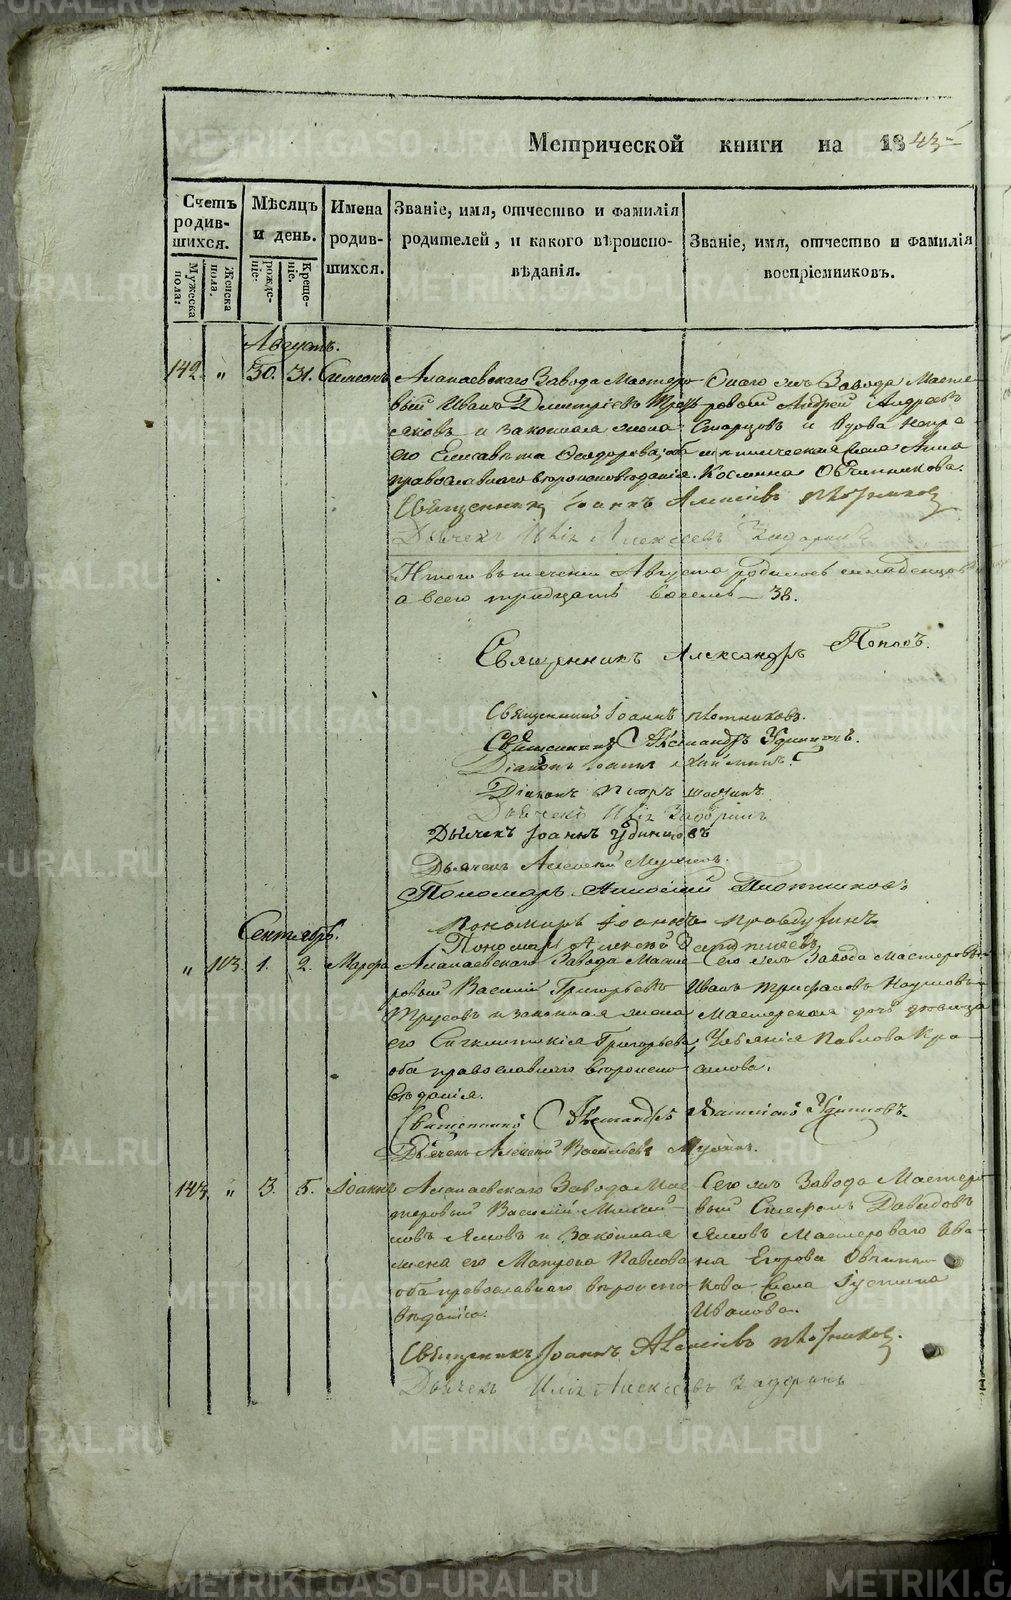 Метрической книги на 1843
Счетъ родив-шихся.
Мужеска пола:
Женска пола.
Мѣсяцъ и день.
рожде-ніе:
Креще-ніе.
Имена родив-шихся.
Званіе, имя, отчество и фамилія
родителей, и какого вѣроиспо-
вѣданія.
Званіе, имя, отчество и фамилія
воспріемниковъ.
Августъ.
142. " 30. 31. Симеонъ
Алапаевскаго Завода Мастеро-
вый Иванъ Дмитріевъ
яковъ и законная жена
его Елисавета Ѳеодорова, оба
православнаго вѣроисповѣданія.
Онаго жъ Завода Масте-
ровой Андрей Андреевъ
Старцовъ и вдова
Анна
Космина Овчинникова.
Священникъ Іоаннъ Алексіевъ Плотниковъ
Дьячекъ Илія Алексеевъ
Итого въ теченіи Августа родилось младенцовъ
а всего тридцать восемь — 38.
Священникъ Александръ Поповъ.
Священникъ Іоаннъ Плотниковъ.
Священникъ Александръ Удинцовъ.
Діаконъ Іоаннъ
Діаконъ Петръ
Дьячекъ Илія
Дьячекъ Іоаннъ Удинцовъ
Дьячекъ Алексей
Пономарь Алексій Плотниковъ
Пономарь Іоаннъ Правдухинъ
Пономарь Алексей
Сентябрь.
" 103. 1. 2. Марфа
Алапаевскаго Завода Масте-
ровый Василій Григорьевъ
Трусовъ и законная жена
его Сигклитикія Григорьева
оба православнаго вѣроиспо-
вѣданія.
Сего жъ Завода Мастеровый
Иванъ Трифановъ Наумовъ
Мастерская дочь девица
Уліянія Павлова Кра-
силова.
Священникъ Александръ Удинцовъ
Дьячекъ Алексей Васильевъ
143. " 3. 5. Іоаннъ
Алапаевскаго Завода Мас-
теровый Василій
новъ Ямовъ и законная
жена его Матрона Павлова
оба православнаго вѣроиспо-
вѣданія.
Сего жъ Завода Мастеро-
вый Стефанъ Давидовъ
Ямовъ Мастероваго Ива-
на Егорова Овчинни-
кова жена Іустина
Иванова.
Священникъ Іоаннъ Алексіевъ Плотниковъ.
Дьячекъ Илія Алексеевъ
METRIKI.GASO-URAL.RU